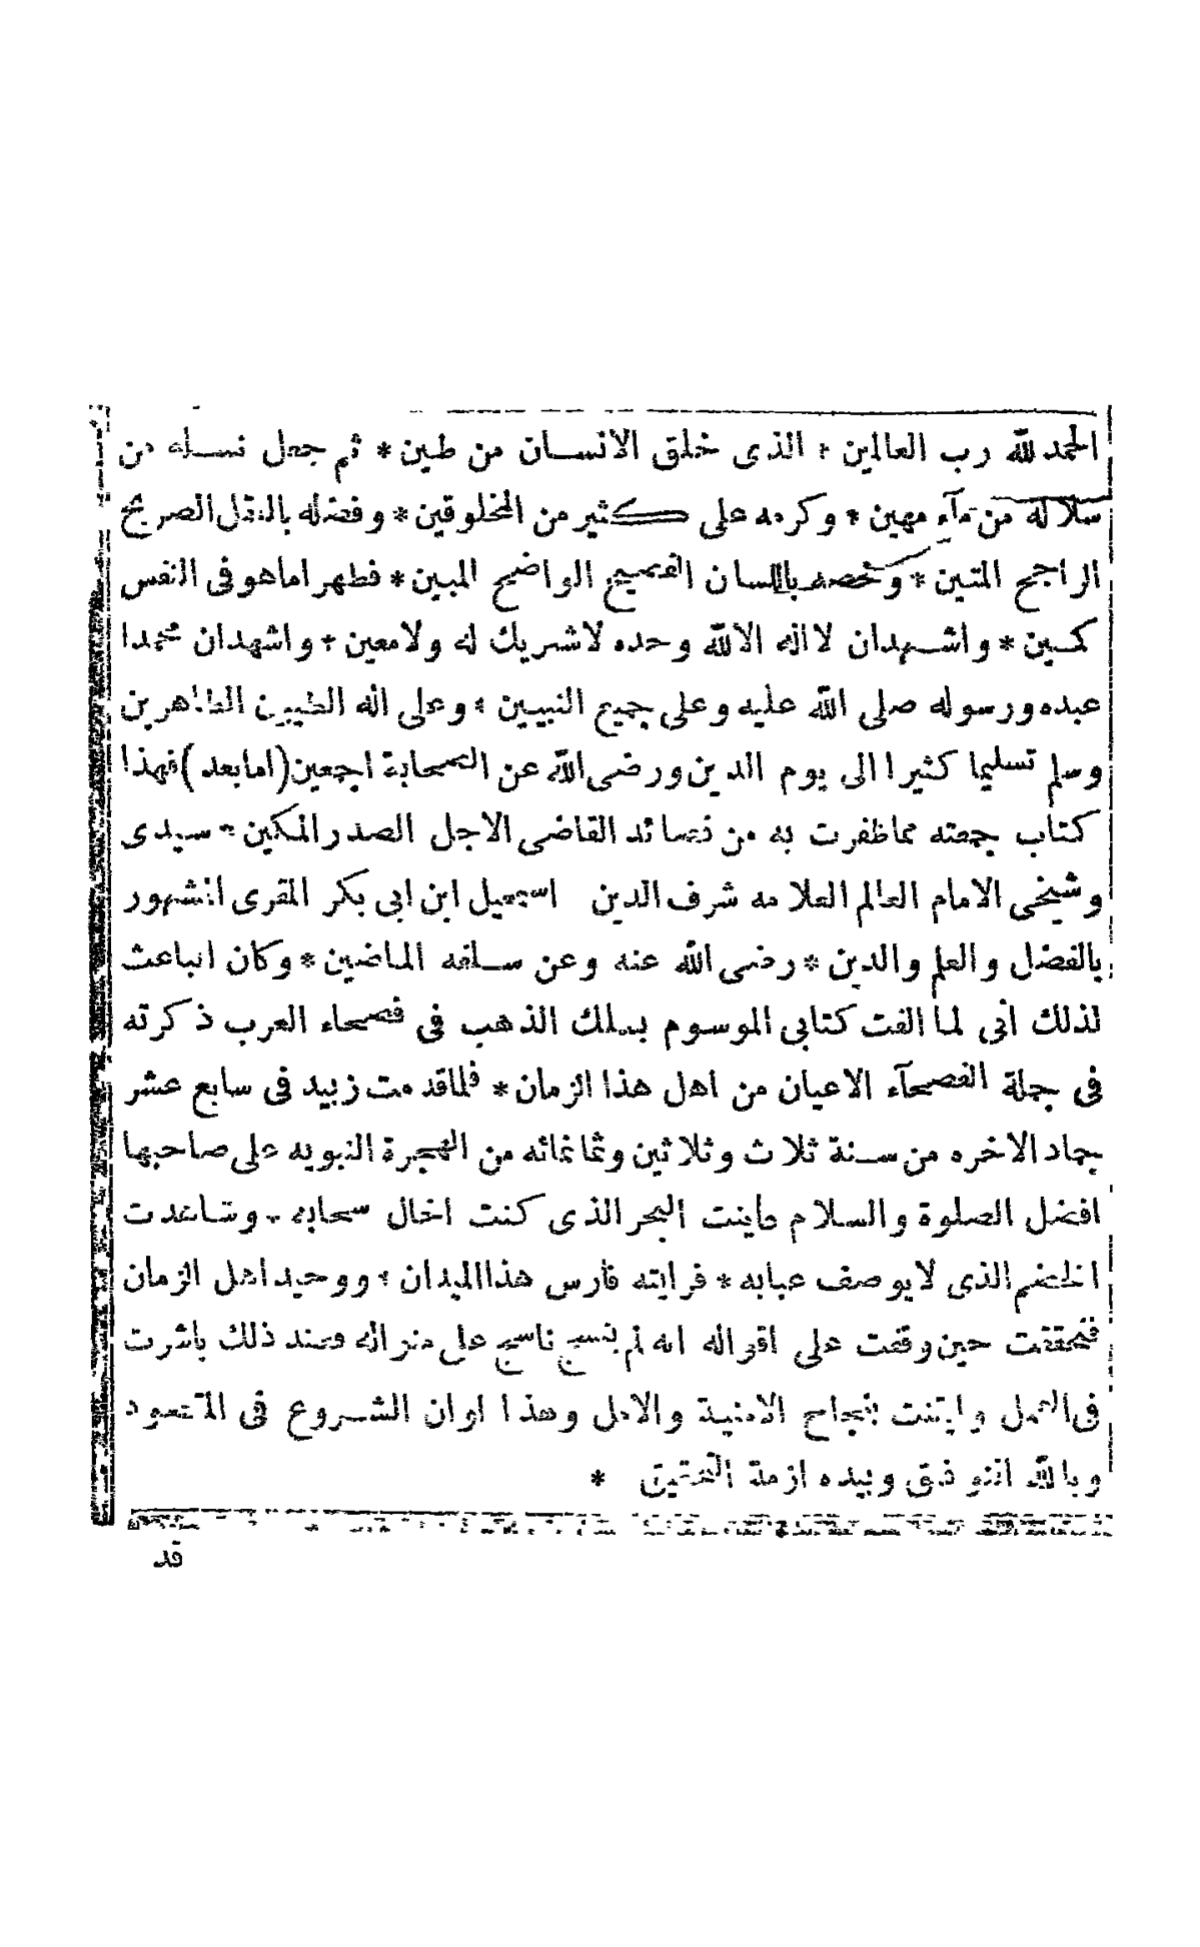 الحمد لله رب العالمين * الذى خلق الانسان من طين * ثم جعل نسله من
سلاله من مآء مهين * وكرمه على كثير من المخلوقين * وفضله بالعقل الصريح
الراجح المتين * وخصه باللسان الفصيح الواضح المبين * فطهر اماهو فى النفس
كمين * واشهدان لااله الاالله وحده لاشريك له ولامعين * واشهدان محمدا
عبده ورسوله صلى الله عليه وعلى جميع النبيين * وعلى اله الطيبين الطاهرين
وسلم تسليما كثيرا الى يوم الدين ورضى الله عن الصحابة اجمعين (امابعد) فهذا
كتاب جمعته مماظفرت به من قصائد القاضى الاجل الصدر المكين * سيدى
وشيخى الامام العالم العلامه شرف الدين اسمعيل ابن ابى بكر المقرى المشهور
بالفضل والعلم والدين * رضى الله عنه وعن سلفه الماضين * وكان الباعث
لذلك انى لما الفت كتابى الموسوم بسلك الذهب فى فصحاء العرب ذكرته
فى جملة الفصحآء الاعيان من اهل هذا الزمان * فلماقدمت زبيد فى سابع عشر
جماد الاخره من سنة ثلاث وثلاثين وثمانمائه من الهجرة النبويه على صاحبها
افضل الصلوة والسلام عاينت البحر الذى كنت اخال سحابه * وشاهدت
الخضم الذى لايوصف عبابه * فرايته فارس هذاالميدان * ووحيد اهل الزمان
فتحققت حين وقفت على اقواله انه لم ينسج ناسج على منواله فعند ذلك باشرت
فى العمل وايقنت بنجاح الامنية والامل وهذا اوان الشروع فى المقصود
وبالله التوفيق وبيده ازمة التحقيق *
قد